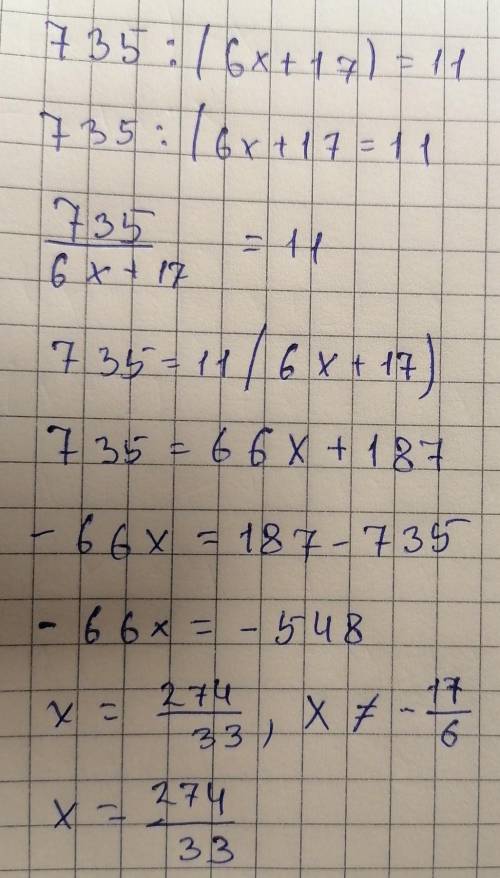 735 : (6x + 17) = 11
735 : (6x + 17 = 11
735/(6x + 17) = 11
735 = 11(6x + 17)
735 = 66x + 187
-66x = 187 - 735
-66x = -548
x = 274/33, x ≠ -17/6
x = 274/33